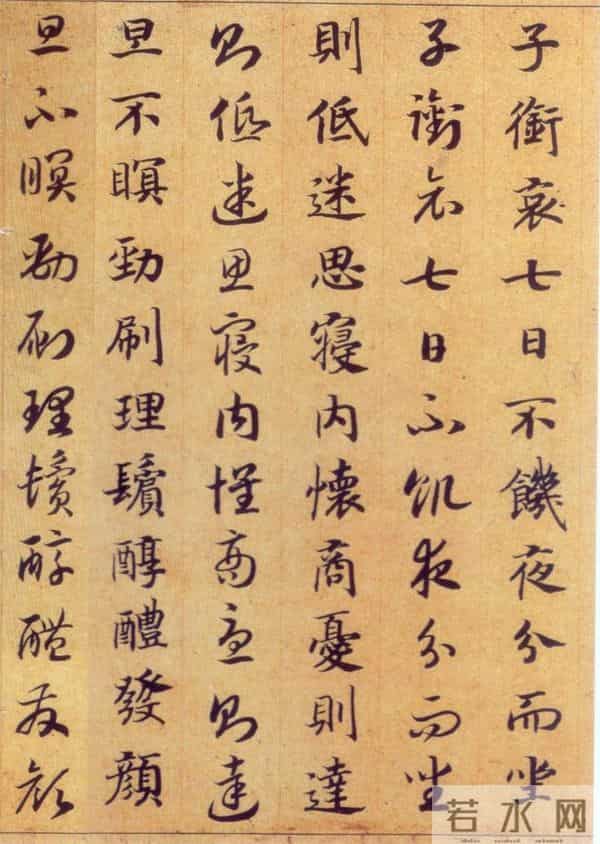 子銜哀七日不饑夜分而坐
子銜哀七日不飢夜分而坐
則低迷思寢内懷商憂則達
則低迷思寢内懷商憂則達
旦不瞑勁刷理鬢醇醴發顔
旦不瞑勁刷理鬢醇醴發顔
若水网